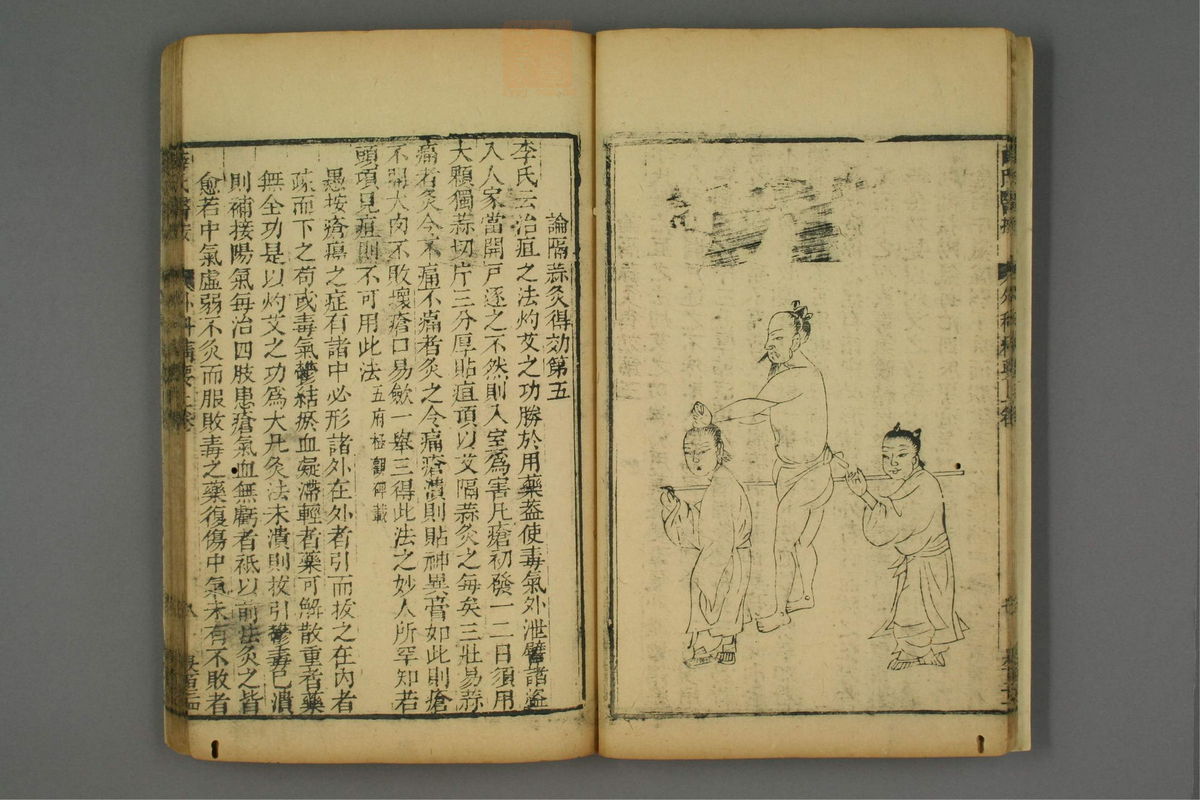 論隔蒜灸得効第五
李氏云治疽之法灼艾之功勝於用藥葢使毒氣外泄譬諸盗
入人家當開戸逐之不然則入室爲害凡瘡初發一二日須用
大顆獨蒜切片三分厚貼疽頂以艾隔蒜灸之每灸三壯易蒜
痛者灸令不痛不痛者灸之令痛瘡潰則貼神異膏如此則瘡
不開大肉不敗壞瘡口易歛一舉三得此法之妙人所罕知若
頭項見疽則不可用此法五府極觀碑載
愚按瘡瘍之症有諸中必形諸外在外者引而拔之在內者
疏而下之苟或毒氣鬱結瘀血凝滯輕者藥可解散重者藥
無全功是以灼艾之功爲大凡灸法未潰則拔引鬱毒已潰
則補接陽氣每治四肢患瘡氣血無虧者祇以前法灸之皆
愈若中氣虛弱不灸而服敗毒之藥復傷中氣未有不敗者